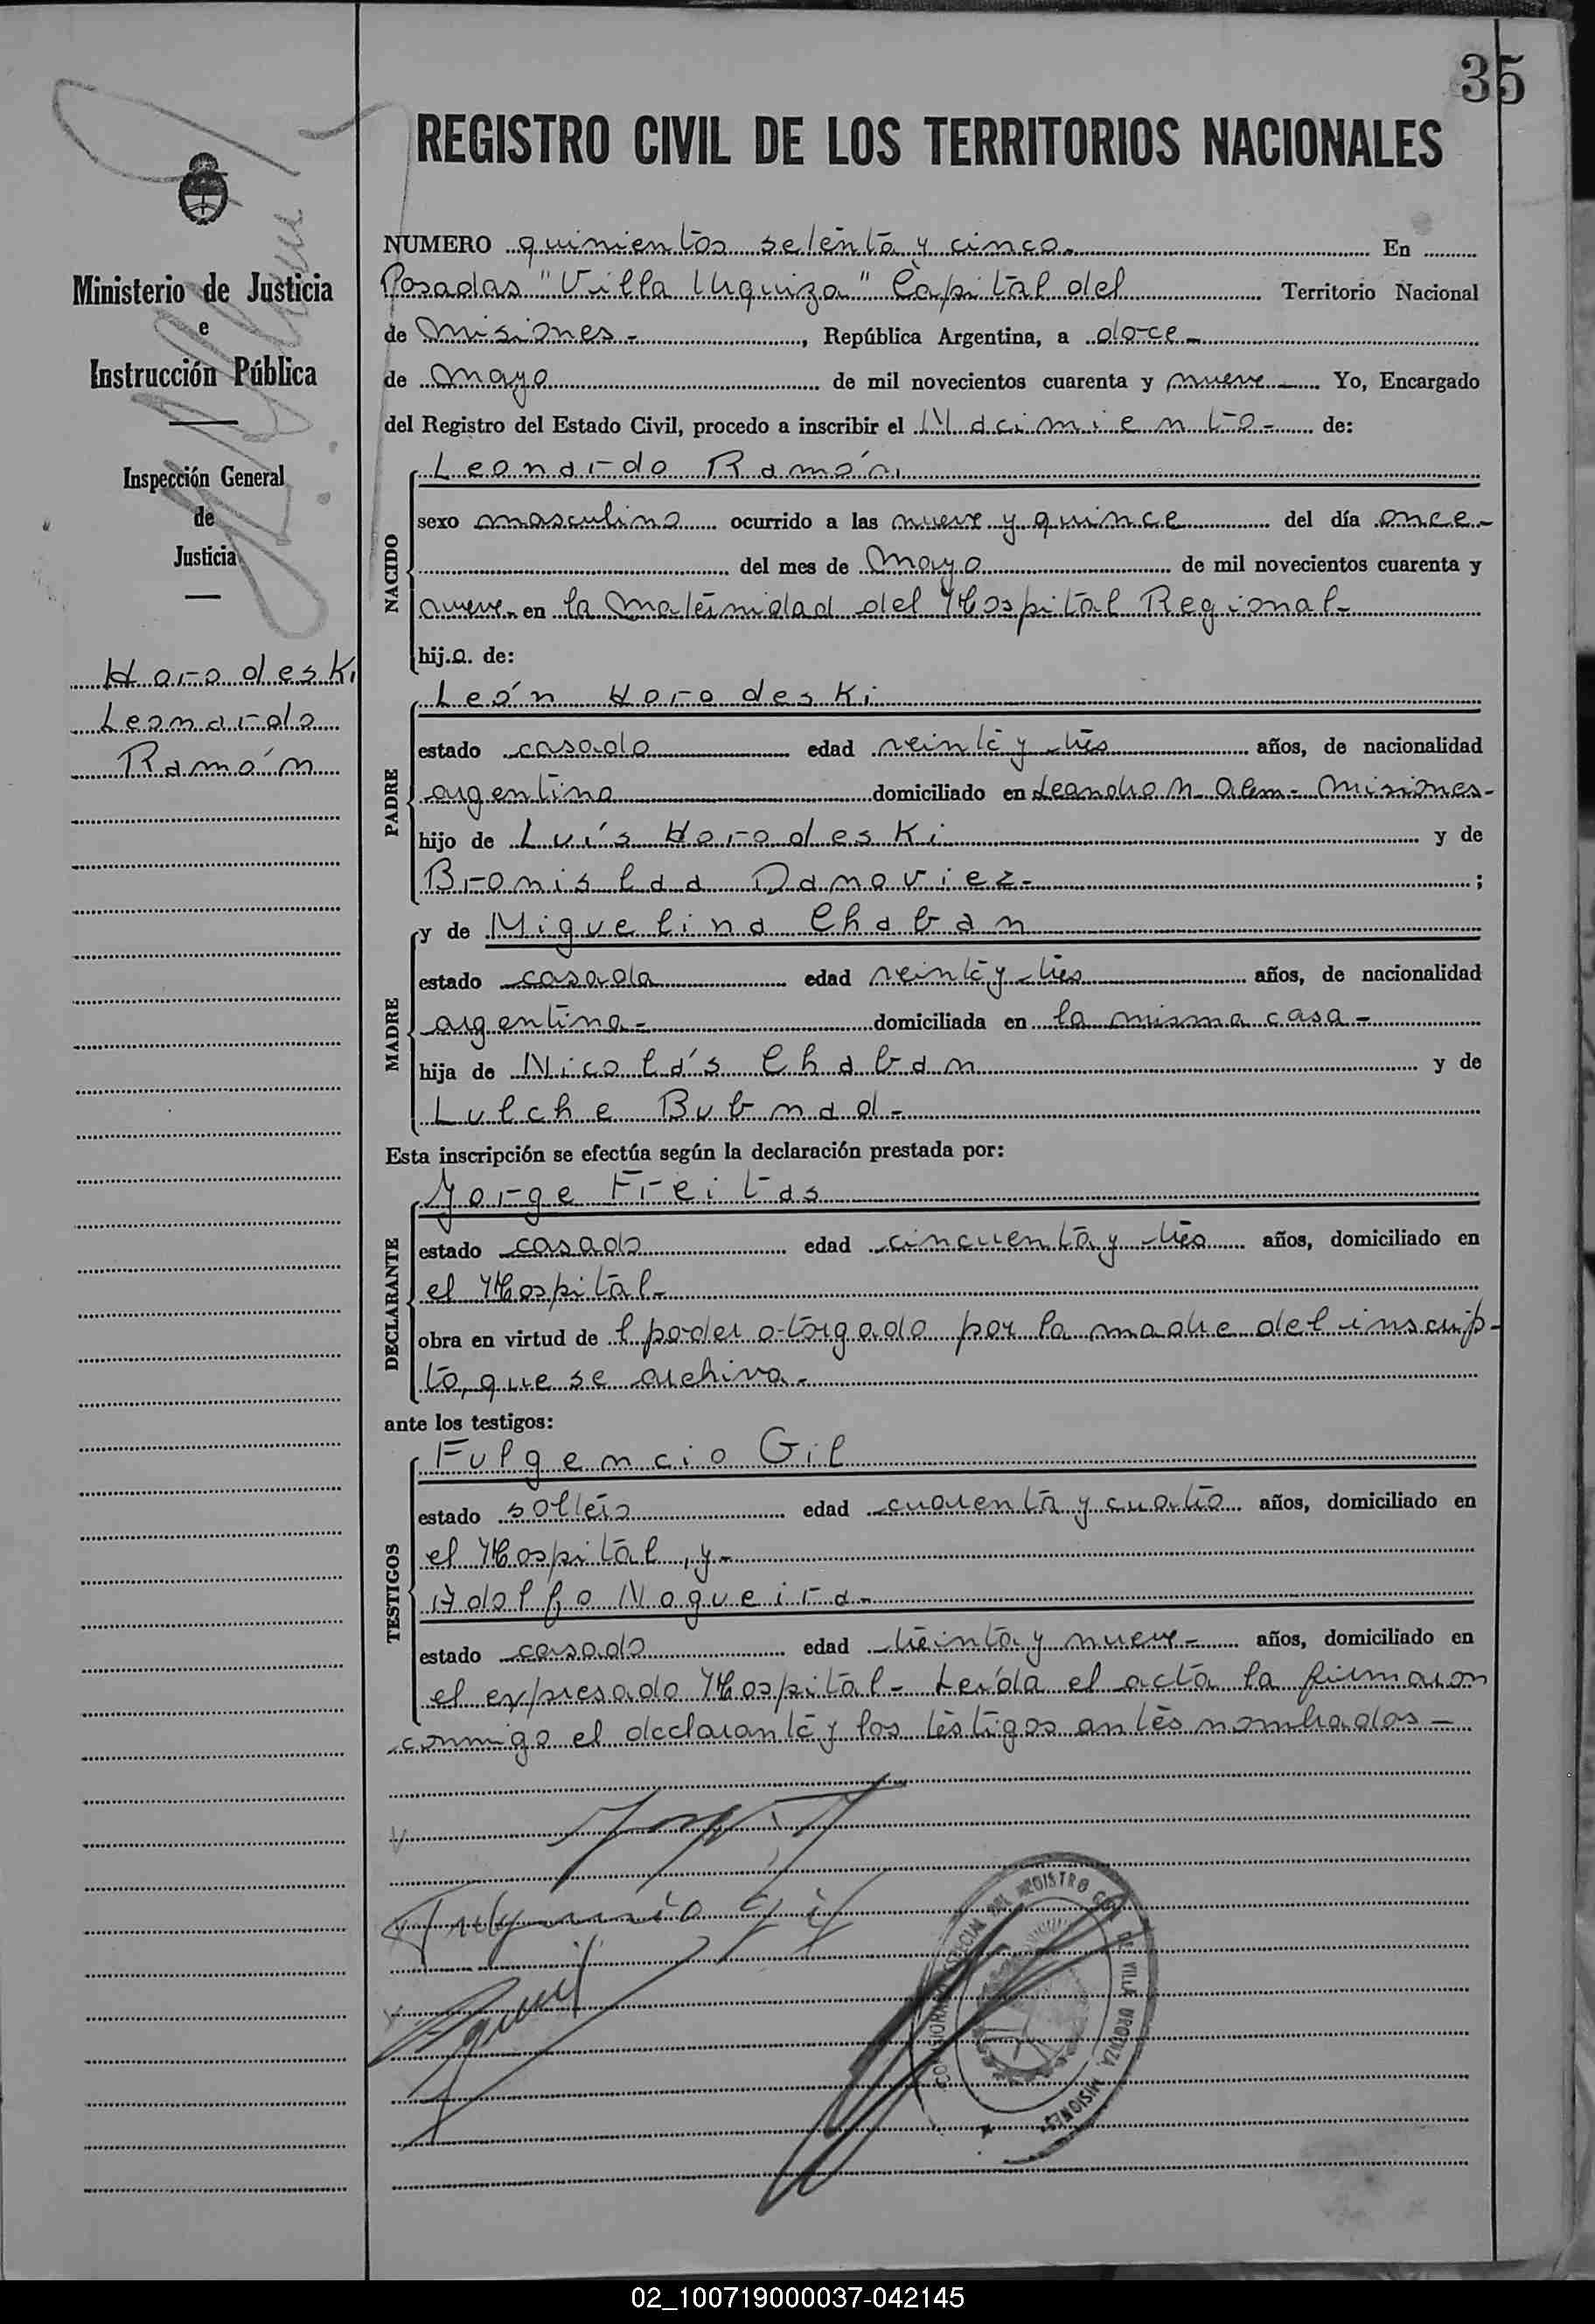 35
REGISTRO CIVIL DE LOS TERRITORIOS NACIONALES
Ministerio de Justicia
e
Instrucción Pública
Inspección General
de
Justicia
Horodeski
Leonardo
Ramón
NUMERO quinientos setenta y cinco.- En
Posadas "Villa Urquiza" Capital del Territorio Nacional
de Misiones.-, República Argentina, a doce.-
de Mayo de mil novecientos cuarenta y nueve.- Yo, Encargado
del Registro del Estado Civil, procedo a inscribir el Nacimiento.- de:
NACIDO
Leonardo Ramón
sexo masculino ocurrido a las nueve y quince del día once.-
del mes de Mayo de mil novecientos cuarenta y
nueve.- en la Maternidad del Hospital Regional.-
hijo de:
PADRE
León Horodeski
estado casado edad veinte y tres años, de nacionalidad
argentino domiciliado en Leandro N. Alem.- Misiones.-
hijo de Luís Horodeski y de
Bronislaa Danoviez.- ;
MADRE
y de Miguelina Chaban
estado casada edad veinte y tres años, de nacionalidad
argentina.- domiciliada en la misma casa.-
hija de Nicolás Chaban y de
Lulche Bubnad.-
Esta inscripción se efectúa según la declaración prestada por:
DECLARANTE
Jorge Freitas
estado casado edad cincuenta y tres años, domiciliado en
el Hospital.-
obra en virtud de l poder otorgado por la madre del inscrip-
to, que se archiva.-
ante los testigos:
TESTIGOS
Fulgencio Gil
estado soltero edad cuarenta y cuatro años, domiciliado en
el Hospital, y.-
Adolfo Nogueira.-
estado casado edad treinta y nueve.- años, domiciliado en
el expresado Hospital.- Leída el acta la firmaron
conmigo el declarante y los testigos antes nombrados.-
Fulgencio Gil
DEL REGISTRO CIVIL DE VILLA URQUIZA MISIONES
02_100719000037-042145